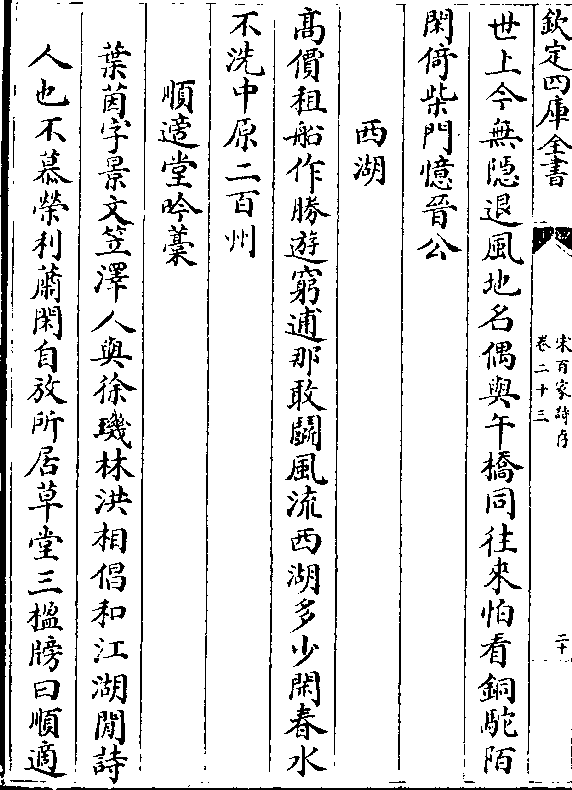 欽定四庫全書
宋百家詩存
卷二十三
二十
世上今無隠退風地名偶與午橋同往來怕看銅駝陌
閑倚柴門憶晉公
西湖
髙價租船作勝遊窮逋那敢鬬風流西湖多少閑春水
不洗中原二百州
順適堂吟藁
葉茵字景文笠澤人與徐璣林洪相倡和江湖閒詩
人也不慕榮利蕭閑自放所居草堂三楹牓曰順適